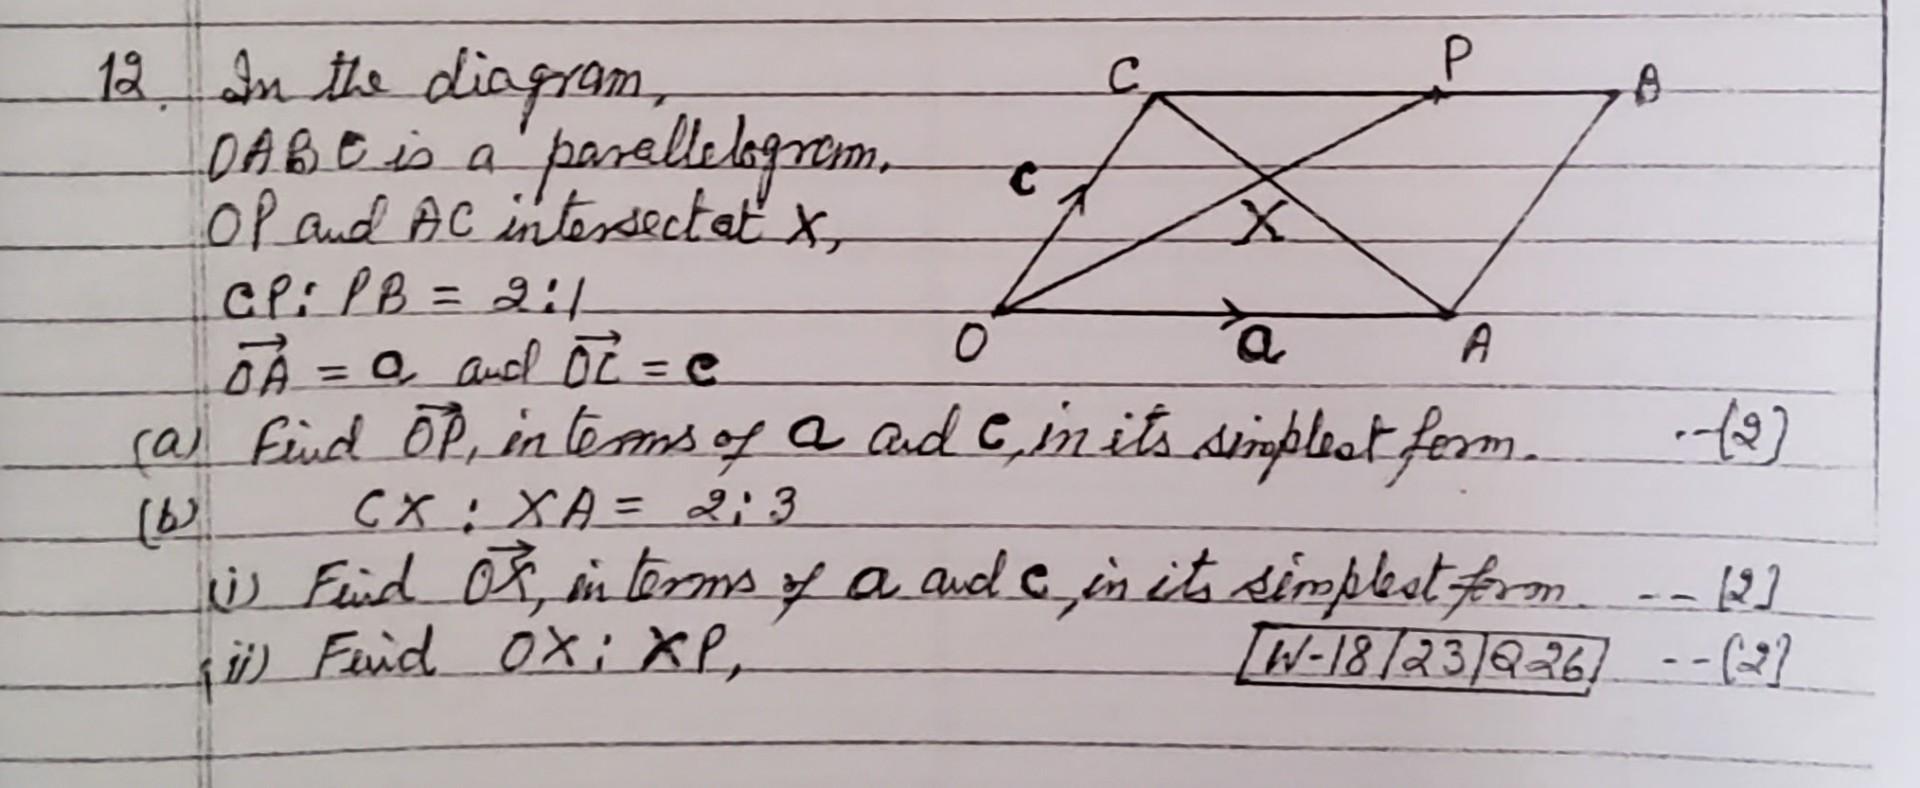 12. In the diagram,
OABC is a parallelogram.
OP and AC intersect at X,
CP : PB = 2:1
OA = a and OC = c
C P B
c X
O a A
(a) Find OP, in terms of a and c, in its simplest form. --[2]
(b) CX : XA = 2:3
(i) Find OX, in terms of a and c, in its simplest form. --[2]
(ii) Find OX : XP, [W-18/23/Q26] --[2]